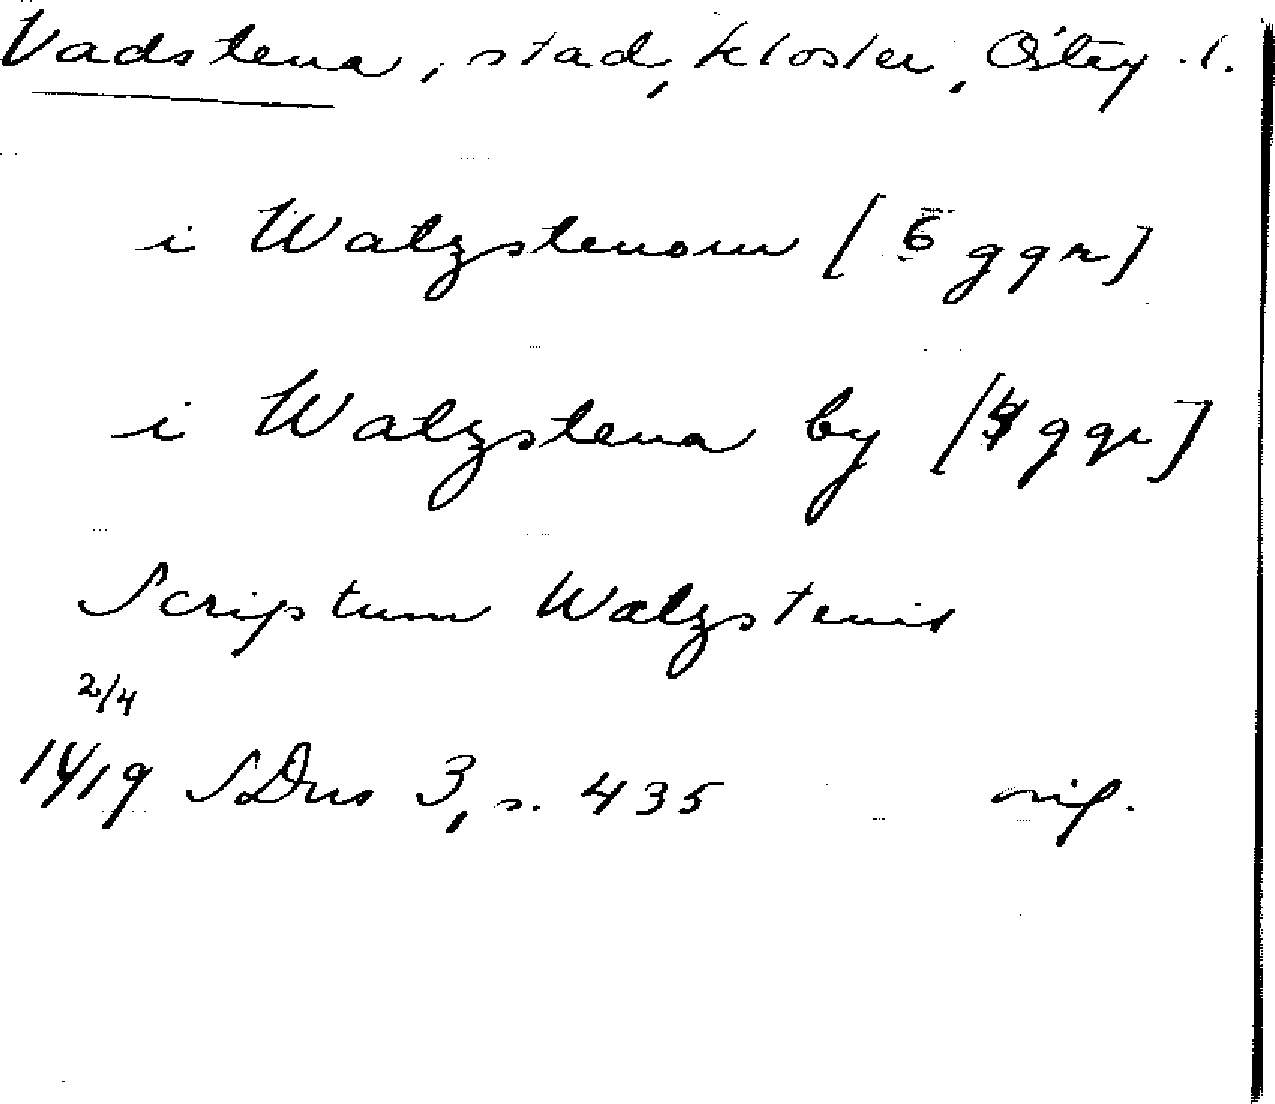 Vadstena, stad, kloster, Östg. l.
i Watzstenom [6 ggr]
i Watzstena by [4 ggr]
Scriptum Watzstenis
2/4
1419 SDns 3, s. 435 orig.